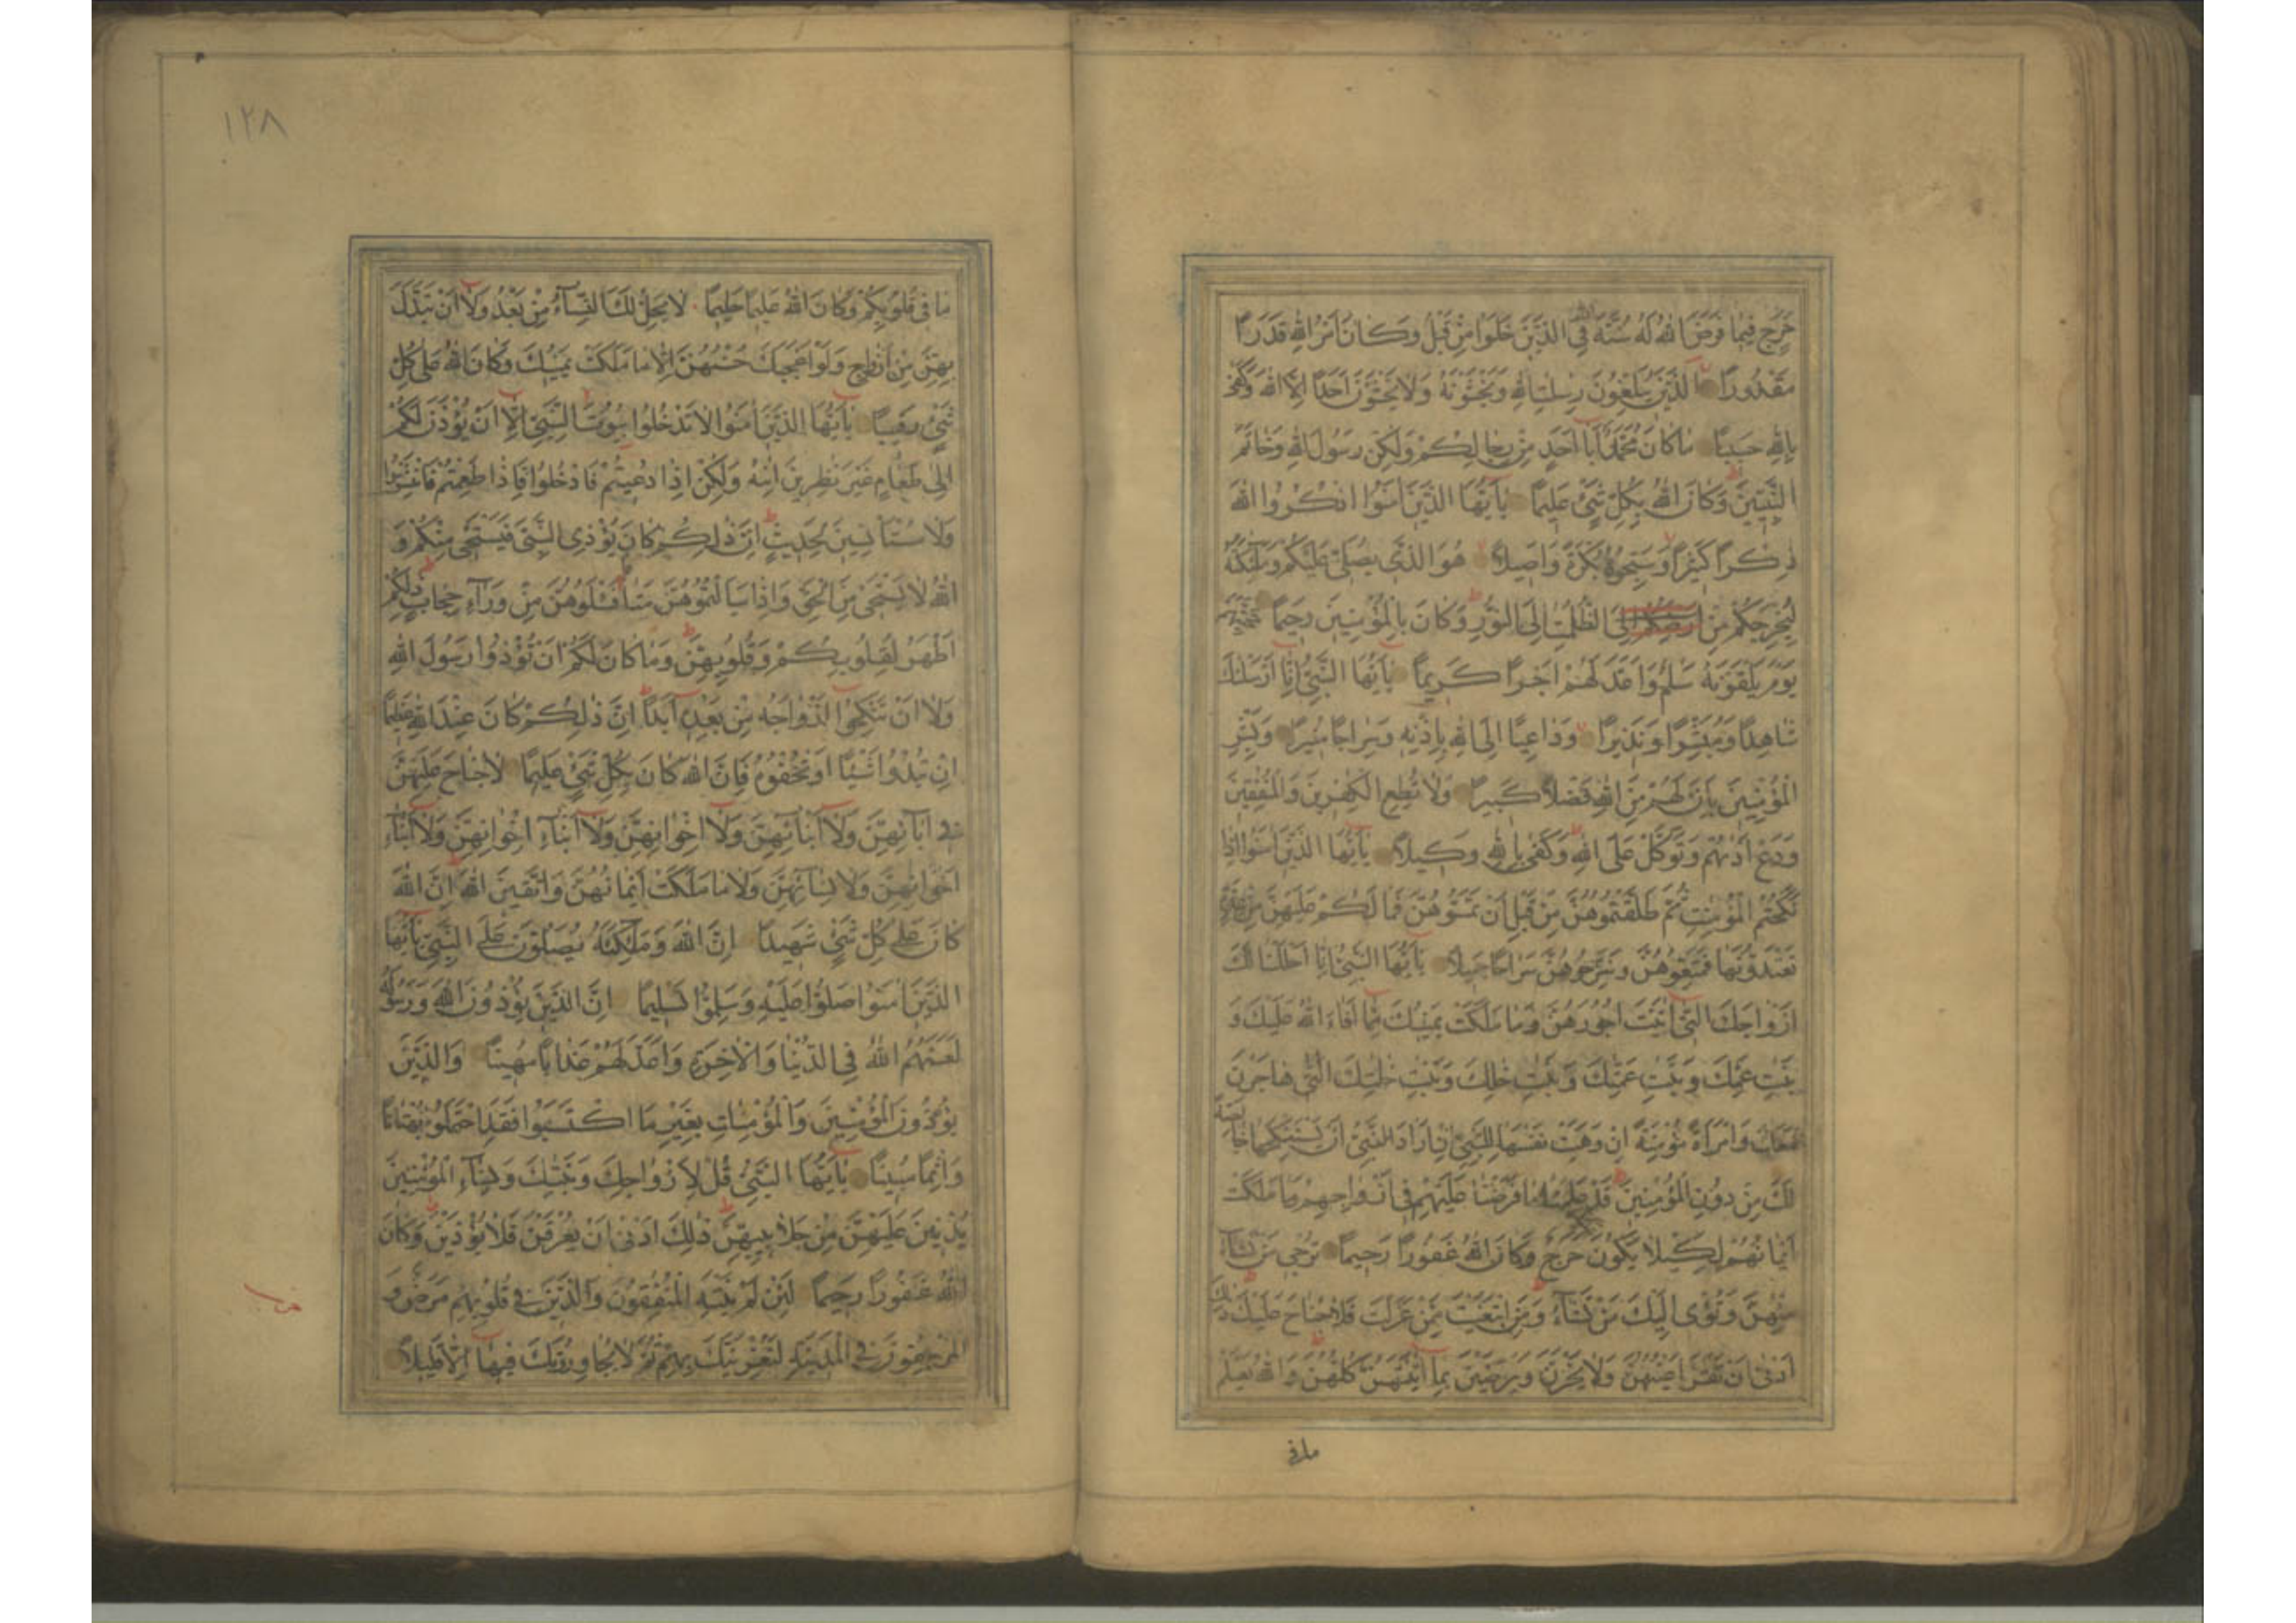 حَرَجٍ فِيمَا فَرَضَ اللهُ لَهُ سُنَّةَ اللهِ فِي الَّذِينَ خَلَوْا مِنْ قَبْلُ وَكَانَ أَمْرُ اللهِ قَدَرًا
مَقْدُورًا الَّذِينَ يُبَلِّغُونَ رِسٰلٰتِ اللهِ وَيَخْشَوْنَهُ وَلَا يَخْشَوْنَ أَحَدًا إِلَّا اللهَ وَكَفَى
بِاللهِ حَسِيبًا مَا كَانَ مُحَمَّدٌ أَبَا أَحَدٍ مِنْ رِجَالِكُمْ وَلٰكِنْ رَسُولَ اللهِ وَخَاتَمَ
النَّبِيِّينَ وَكَانَ اللهُ بِكُلِّ شَيْءٍ عَلِيمًا يَا أَيُّهَا الَّذِينَ آمَنُوا اذْكُرُوا اللهَ
ذِكْرًا كَثِيرًا وَسَبِّحُوهُ بُكْرَةً وَأَصِيلًا هُوَ الَّذِي يُصَلِّي عَلَيْكُمْ وَمَلٰئِكَتُهُ
لِيُخْرِجَكُمْ مِنَ الظُّلُمٰتِ إِلَى النُّورِ وَكَانَ بِالْمُؤْمِنِينَ رَحِيمًا تَحِيَّتُهُمْ
يَوْمَ يَلْقَوْنَهُ سَلٰمٌ وَأَعَدَّ لَهُمْ أَجْرًا كَرِيمًا يَا أَيُّهَا النَّبِيُّ إِنَّا أَرْسَلْنٰكَ
شَاهِدًا وَمُبَشِّرًا وَنَذِيرًا وَدَاعِيًا إِلَى اللهِ بِإِذْنِهِ وَسِرَاجًا مُنِيرًا وَبَشِّرِ
الْمُؤْمِنِينَ بِأَنَّ لَهُمْ مِنَ اللهِ فَضْلًا كَبِيرًا وَلَا تُطِعِ الْكٰفِرِينَ وَالْمُنٰفِقِينَ
وَدَعْ أَذٰىهُمْ وَتَوَكَّلْ عَلَى اللهِ وَكَفَى بِاللهِ وَكِيلًا يَا أَيُّهَا الَّذِينَ آمَنُوا إِذَا
نَكَحْتُمُ الْمُؤْمِنٰتِ ثُمَّ طَلَّقْتُمُوهُنَّ مِنْ قَبْلِ أَنْ تَمَسُّوهُنَّ فَمَا لَكُمْ عَلَيْهِنَّ مِنْ عِدَّةٍ
تَعْتَدُّونَهَا فَمَتِّعُوهُنَّ وَسَرِّحُوهُنَّ سَرَاحًا جَمِيلًا يَا أَيُّهَا النَّبِيُّ إِنَّا أَحْلَلْنَا لَكَ
أَزْوَاجَكَ الّٰتِي آتَيْتَ أُجُورَهُنَّ وَمَا مَلَكَتْ يَمِينُكَ مِمَّا أَفَاءَ اللهُ عَلَيْكَ وَ
بَنٰتِ عَمِّكَ وَبَنٰتِ عَمّٰتِكَ وَبَنٰتِ خَالِكَ وَبَنٰتِ خٰلٰتِكَ الّٰتِي هَاجَرْنَ
مَعَكَ وَامْرَأَةً مُؤْمِنَةً إِنْ وَهَبَتْ نَفْسَهَا لِلنَّبِيِّ إِنْ أَرَادَ النَّبِيُّ أَنْ يَسْتَنْكِحَهَا خَالِصَةً
لَكَ مِنْ دُونِ الْمُؤْمِنِينَ قَدْ عَلِمْنَا مَا فَرَضْنَا عَلَيْهِمْ فِي أَزْوَاجِهِمْ وَمَا مَلَكَتْ
أَيْمَانُهُمْ لِكَيْلَا يَكُونَ حَرَجٌ وَكَانَ اللهُ غَفُورًا رَحِيمًا تُرْجِي مَنْ تَشَاءُ
مِنْهُنَّ وَتُؤْوِي إِلَيْكَ مَنْ تَشَاءُ وَمَنِ ابْتَغَيْتَ مِمَّنْ عَزَلْتَ فَلَا جُنَاحَ عَلَيْكَ ذٰلِكَ
أَدْنَى أَنْ تَقَرَّ أَعْيُنُهُنَّ وَلَا يَحْزَنَّ وَيَرْضَيْنَ بِمَا آتَيْتَهُنَّ كُلُّهُنَّ وَاللهُ يَعْلَمُ
ما في
١٢٨
مَا فِي قُلُوبِكُمْ وَكَانَ اللهُ عَلِيمًا حَلِيمًا لَا يَحِلُّ لَكَ النِّسَاءُ مِنْ بَعْدُ وَلَا أَنْ تَبَدَّلَ
بِهِنَّ مِنْ أَزْوَاجٍ وَلَوْ أَعْجَبَكَ حُسْنُهُنَّ إِلَّا مَا مَلَكَتْ يَمِينُكَ وَكَانَ اللهُ عَلَى كُلِّ
شَيْءٍ رَقِيبًا يَا أَيُّهَا الَّذِينَ آمَنُوا لَا تَدْخُلُوا بُيُوتَ النَّبِيِّ إِلَّا أَنْ يُؤْذَنَ لَكُمْ
إِلَى طَعَامٍ غَيْرَ نٰظِرِينَ إِنٰىهُ وَلٰكِنْ إِذَا دُعِيتُمْ فَادْخُلُوا فَإِذَا طَعِمْتُمْ فَانْتَشِرُوا
وَلَا مُسْتَأْنِسِينَ لِحَدِيثٍ إِنَّ ذٰلِكُمْ كَانَ يُؤْذِي النَّبِيَّ فَيَسْتَحْيِي مِنْكُمْ وَ
اللهُ لَا يَسْتَحْيِي مِنَ الْحَقِّ وَإِذَا سَأَلْتُمُوهُنَّ مَتَاعًا فَسْئَلُوهُنَّ مِنْ وَرَاءِ حِجَابٍ ذٰلِكُمْ
أَطْهَرُ لِقُلُوبِكُمْ وَقُلُوبِهِنَّ وَمَا كَانَ لَكُمْ أَنْ تُؤْذُوا رَسُولَ اللهِ
وَلَا أَنْ تَنْكِحُوا أَزْوَاجَهُ مِنْ بَعْدِهِ أَبَدًا إِنَّ ذٰلِكُمْ كَانَ عِنْدَ اللهِ عَظِيمًا
إِنْ تُبْدُوا شَيْئًا أَوْ تُخْفُوهُ فَإِنَّ اللهَ كَانَ بِكُلِّ شَيْءٍ عَلِيمًا لَا جُنَاحَ عَلَيْهِنَّ
فِي آبَائِهِنَّ وَلَا أَبْنَائِهِنَّ وَلَا إِخْوَانِهِنَّ وَلَا أَبْنَاءِ إِخْوَانِهِنَّ وَلَا أَبْنَاءِ
أَخَوَاتِهِنَّ وَلَا نِسَائِهِنَّ وَلَا مَا مَلَكَتْ أَيْمَانُهُنَّ وَاتَّقِينَ اللهَ إِنَّ اللهَ
كَانَ عَلَى كُلِّ شَيْءٍ شَهِيدًا إِنَّ اللهَ وَمَلٰئِكَتَهُ يُصَلُّونَ عَلَى النَّبِيِّ يَا أَيُّهَا
الَّذِينَ آمَنُوا صَلُّوا عَلَيْهِ وَسَلِّمُوا تَسْلِيمًا إِنَّ الَّذِينَ يُؤْذُونَ اللهَ وَرَسُولَهُ
لَعَنَهُمُ اللهُ فِي الدُّنْيَا وَالْآخِرَةِ وَأَعَدَّ لَهُمْ عَذَابًا مُهِينًا وَالَّذِينَ
يُؤْذُونَ الْمُؤْمِنِينَ وَالْمُؤْمِنَاتِ بِغَيْرِ مَا اكْتَسَبُوا فَقَدِ احْتَمَلُوا بُهْتَانًا
وَإِثْمًا مُبِينًا يَا أَيُّهَا النَّبِيُّ قُلْ لِأَزْوَاجِكَ وَبَنٰتِكَ وَنِسَاءِ الْمُؤْمِنِينَ
يُدْنِينَ عَلَيْهِنَّ مِنْ جَلَابِيبِهِنَّ ذٰلِكَ أَدْنَى أَنْ يُعْرَفْنَ فَلَا يُؤْذَيْنَ وَكَانَ
اللهُ غَفُورًا رَحِيمًا لَئِنْ لَمْ يَنْتَهِ الْمُنٰفِقُونَ وَالَّذِينَ فِي قُلُوبِهِمْ مَرَضٌ وَ
الْمُرْجِفُونَ فِي الْمَدِينَةِ لَنُغْرِيَنَّكَ بِهِمْ ثُمَّ لَا يُجَاوِرُونَكَ فِيهَا إِلَّا قَلِيلًا